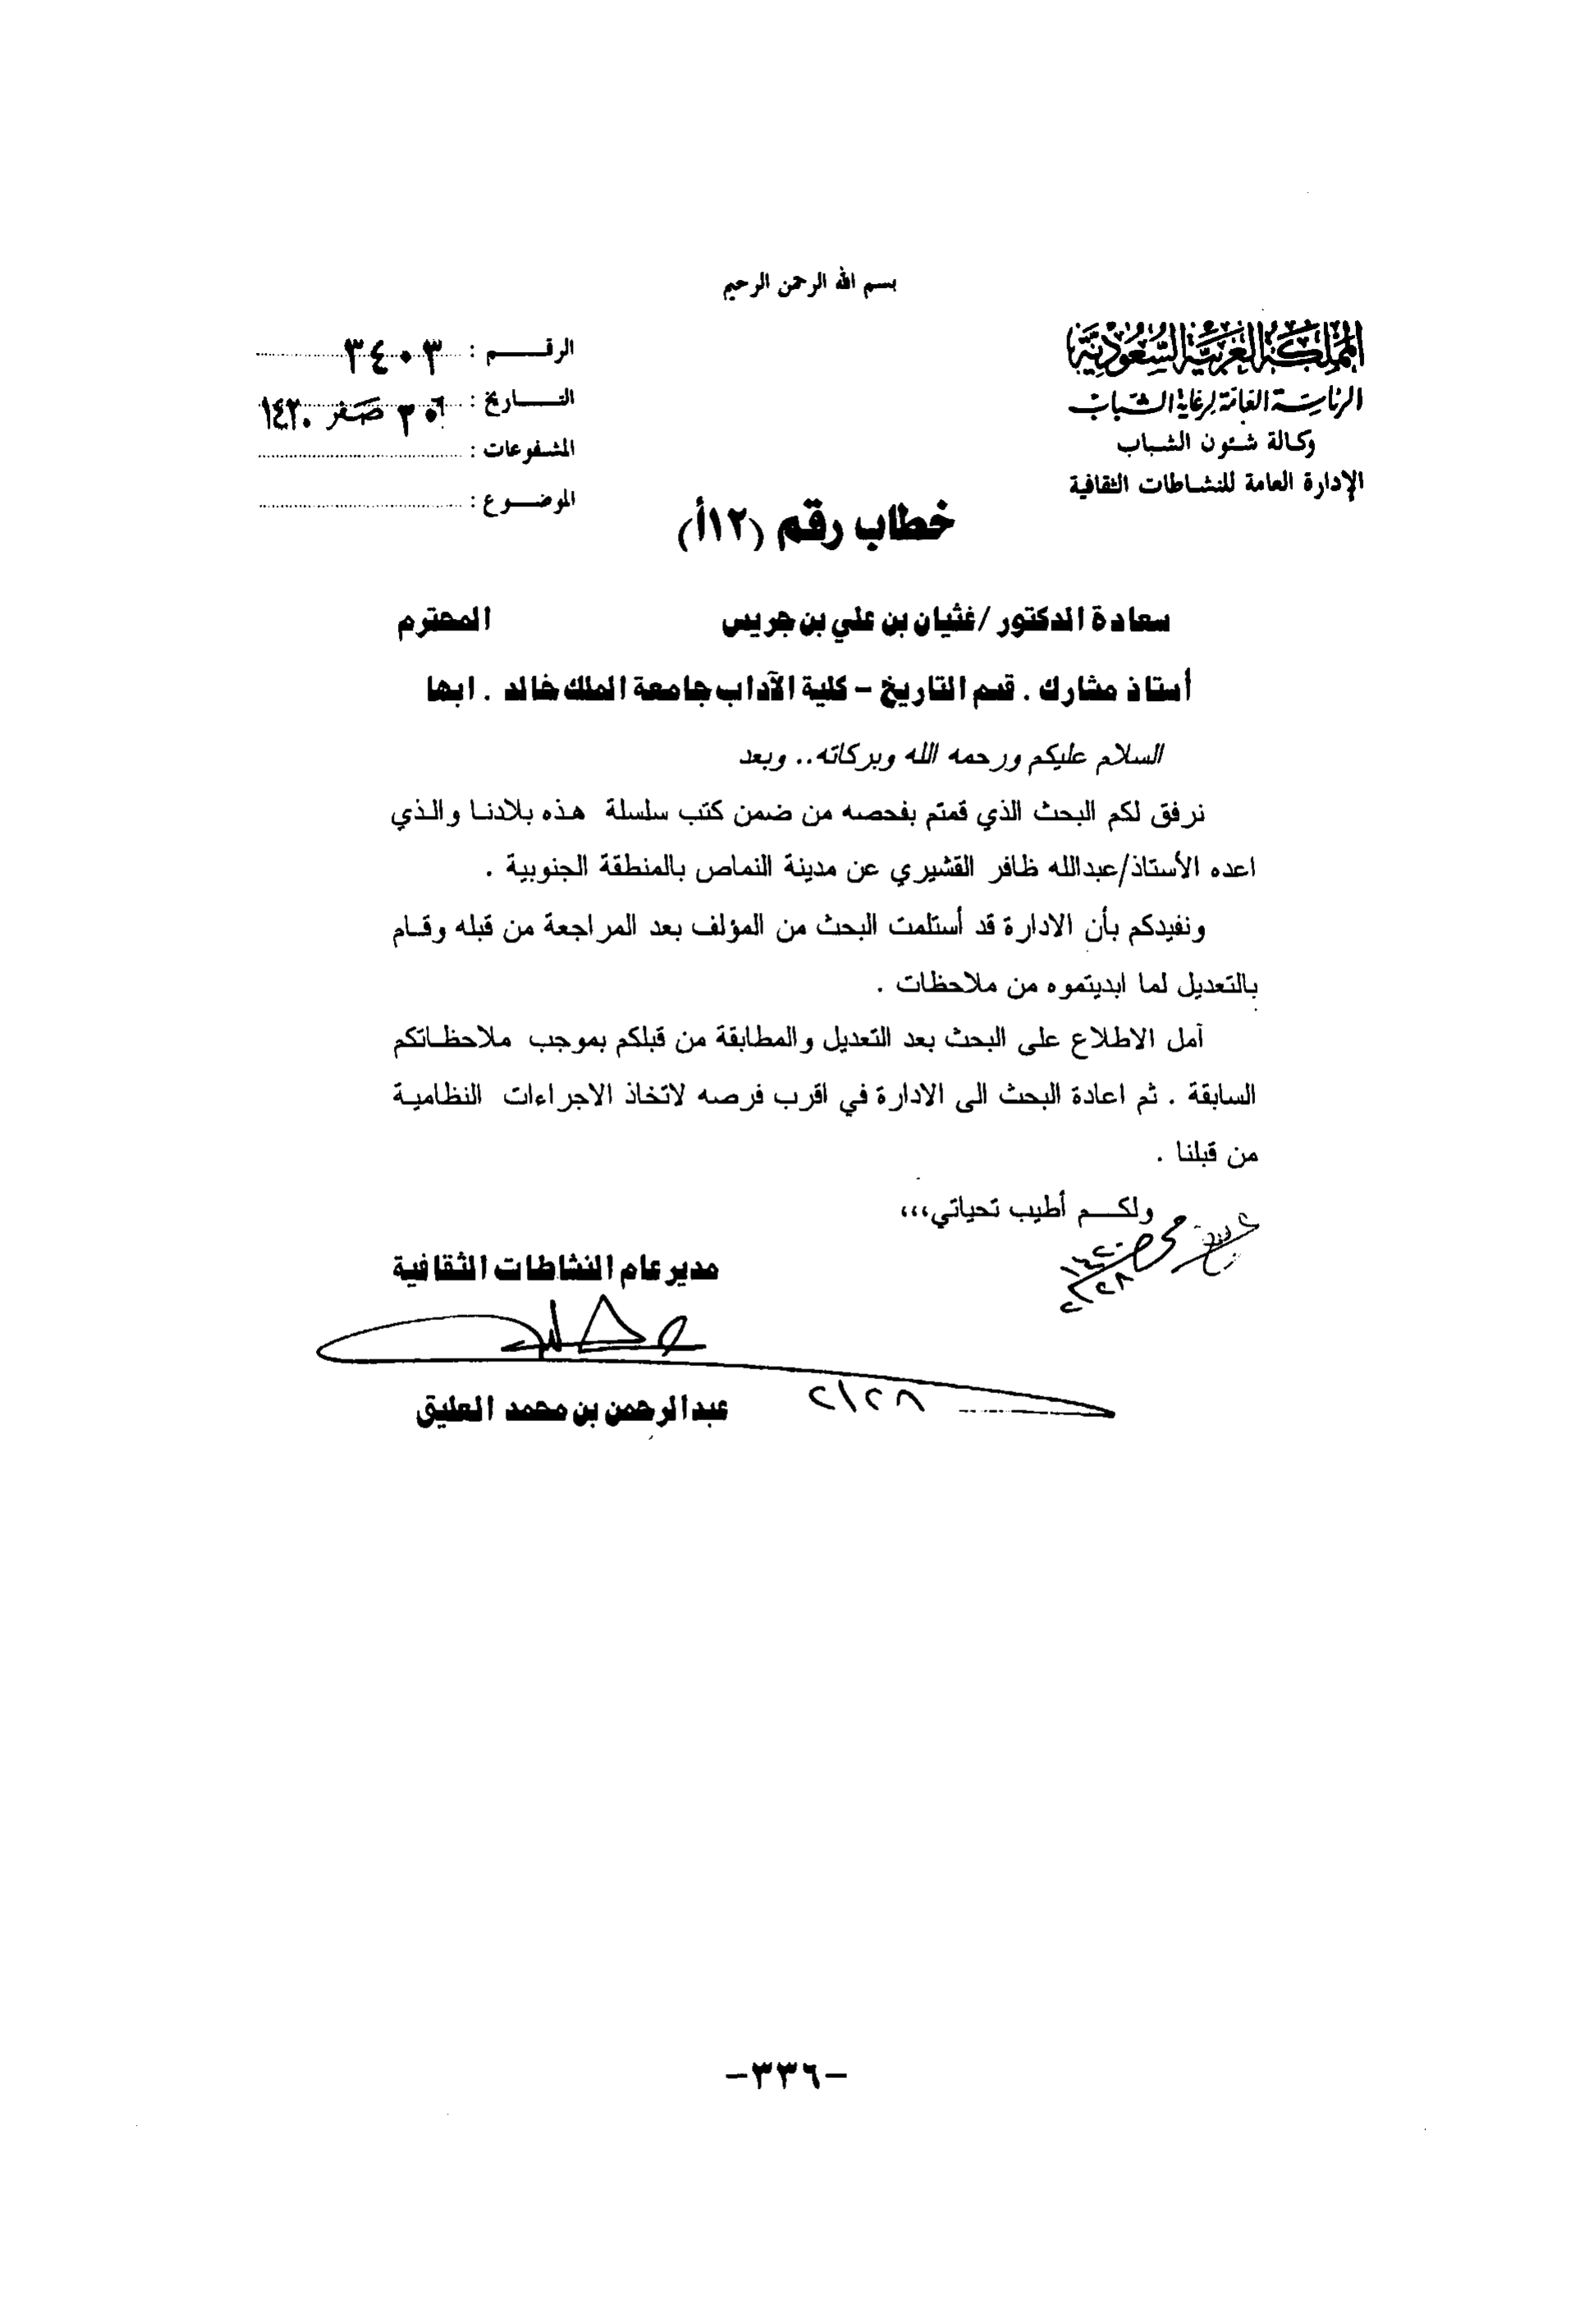 بسم الله الرحمن الرحيم
المملكة العربية السعودية
الرئاسة العامة لرعاية الشباب
وكالة شئون الشباب
الإدارة العامة للنشاطات الثقافية
الرقــم : ٣٤٠٣
التــاريخ : صفر ١٤٢٠
المشفوعات :
الموضــوع :
خطاب رقم (١٢أ)
سعادة الدكتور /غثيان بن علي بن جريس المحترم
أستاذ مشارك . قسم التاريخ – كلية الآداب جامعة الملك خالد . ابها
السلام عليكم ورحمه الله وبركاته.. وبعد
نرفق لكم البحث الذي قمتم بفحصه من ضمن كتب سلسلة هذه بلادنا والذي
اعده الأستاذ/عبدالله ظافر القشيري عن مدينة النماص بالمنطقة الجنوبية .
ونفيدكم بأن الادارة قد أستلمت البحث من المؤلف بعد المراجعة من قبله وقام
بالتعديل لما ابديتموه من ملاحظات .
آمل الاطلاع على البحث بعد التعديل والمطابقة من قبلكم بموجب ملاحظاتكم
السابقة . ثم اعادة البحث الى الادارة في اقرب فرصه لاتخاذ الاجراءات النظامية
من قبلنا .
ولكــم أطيب تحياتي،،،
مدير عام النشاطات الثقافية
٢/٢٨
عبدالرحمن بن محمد العليق
-٣٣٦-